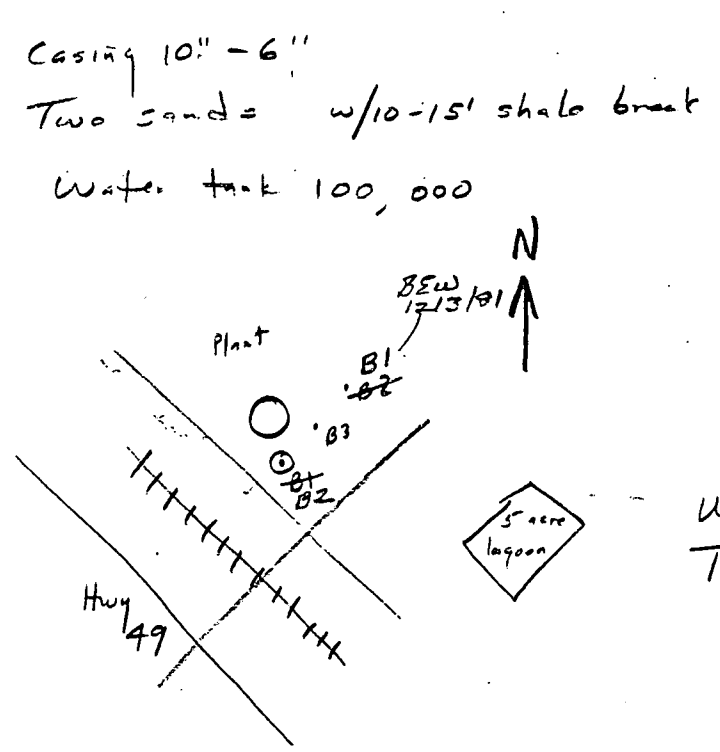 Casing 10" - 6"
Two sands w/10-15' shale break
Water tank 100,000
N
BEW
12/3/81
Plant
B1
B2
B3
B1
B2
5 acre
lagoon
Hwy
49